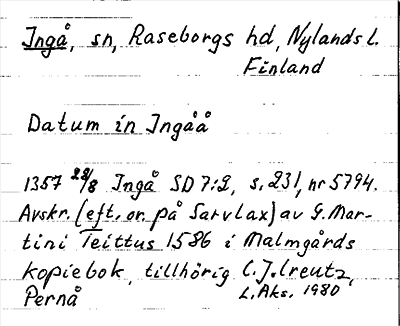 Ingå, sn, Raseborgs hd, Nylands l.
Finland
Datum in Ingåå
1357 28/8 Ingå SD 7:2, s. 231, nr 5794.
Avskr. (eft. or. på Sarvlax) av G. Mar-
tini Teittus 1586 i Malmgårds
kopiebok, tillhörig C. J. Creutz,
Pernå
L. Aks. 1980